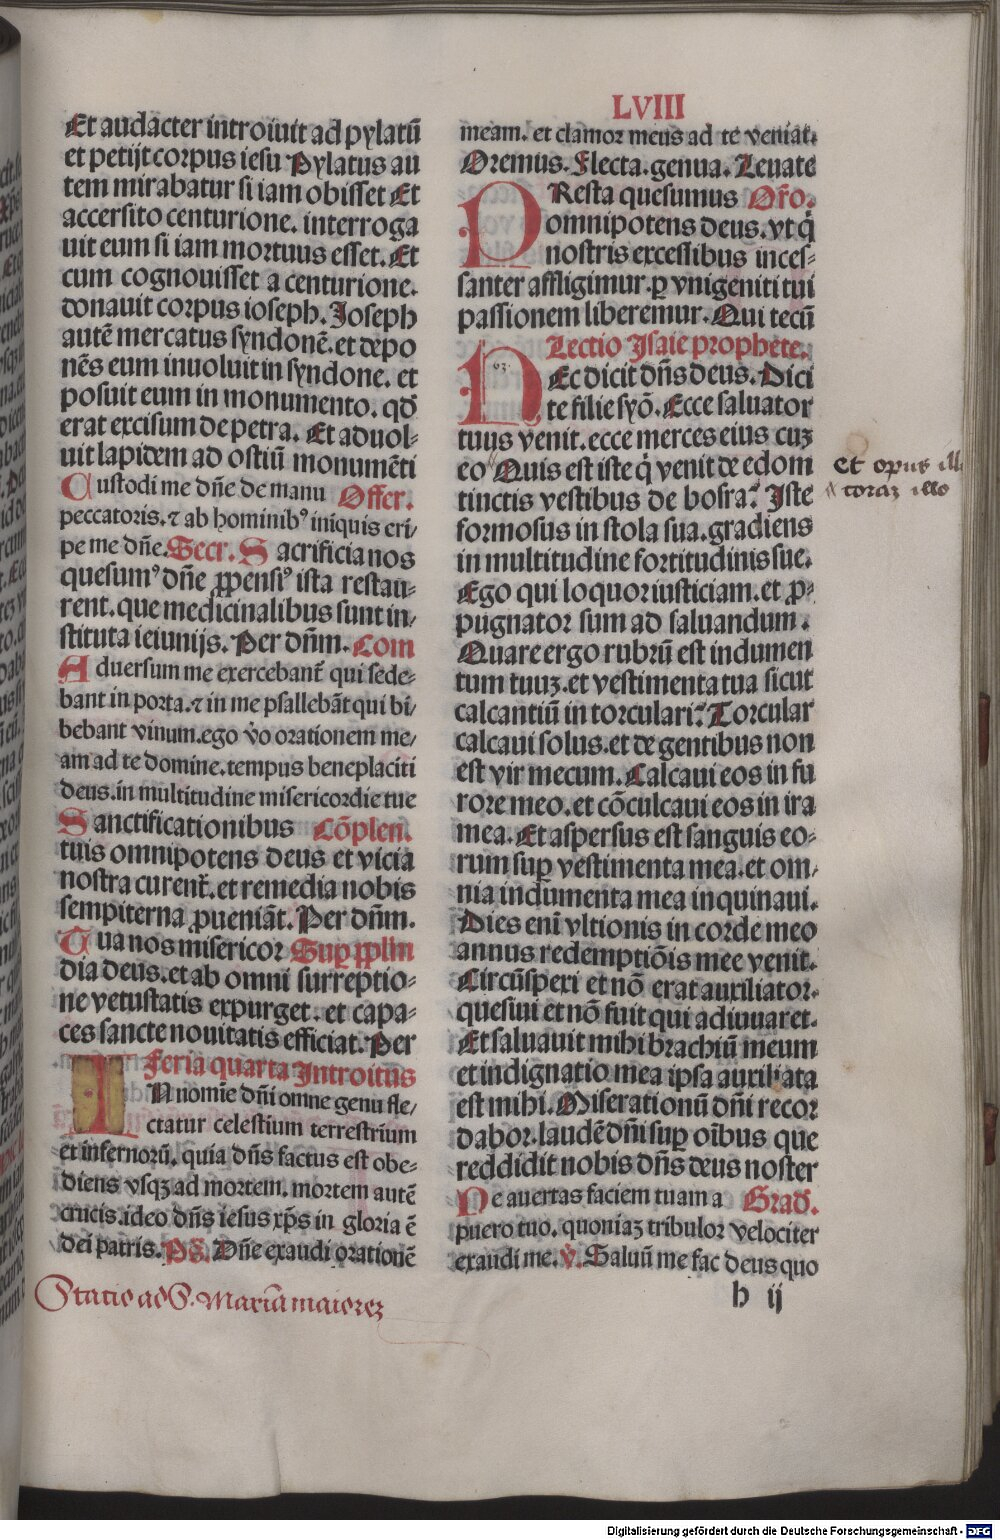 LVIII
Et audacter introiuit ad pylatū
et petijt corpus iesu Pylatus au
tem mirabatur si iam obisset Et
accersito centurione. interroga
uit eum si iam mortuus esset. Et
cum cognouisset a centurione.
donauit corpus ioseph. Joseph
autē mercatus syndonē. et depo
nēs eum inuoluit in syndone. et
posuit eum in monumento. qđ
erat excisum de petra. Et aduol-
uit lapidem ad ostiū monumēti
Custodi me dn̄e de manu Offer.
peccatoris. ⁊ ab hominibꝰ iniquis eri-
pe me dn̄e. Secr. Sacrificia nos
quesumꝰ dn̄e ꝓpensiꝰ ista restau-
rent. que medicinalibus sunt in-
stituta ieiunijs. Per dn̄m. Com
Aduersum me exercebant̄ qui sede-
bant in porta. ⁊ in me psallebāt qui bi-
bebant vinum. ego v̄o orationem me-
am ad te domine. tempus beneplaciti
deus. in multitudine misericordie tue
Sanctificationibus Cōplen.
tuis omnipotens deus et vicia
nostra curent̄. et remedia nobis
sempiterna ꝓueniāt. Per dn̄m.
Tua nos misericor Suꝑ ꝓplm
dia deus. et ab omni surreptio-
ne vetustatis expurget. et capa-
ces sancte nouitatis efficiat. Per
Feria quarta Introitus
IN nomīe dn̄i omne genu fle-
ctatur celestium terrestrium
et infernorū. quia dn̄s factus est obe-
diens vsqꝫ ad mortem. mortem autē
crucis. ideo dn̄s iesus xp̄s in gloria ē
dei patris. Ps̄. Dn̄e exaudi orationē
Statio ad S. Mariā maiorez
meam. et clamor meus ad te veniat.
Oremus. Flecta. genua. Leuate
PResta quesumus Or̄o.
omnipotens deus. vt q̄
nostris excessibus inces-
santer affligimur. ꝑ vnigeniti tui
passionem liberemur. Qui tecū
Lectio Isaie prophete.
HEc dicit dn̄s deus. Dici
te filie syō. Ecce saluator
tuus venit. ecce merces eius cuꝫ
eo Quis est iste q̄ venit de edom
tinctis vestibus de bosra? Iste
formosus in stola sua. gradiens
in multitudine fortitudinis sue.
Ego qui loquor iusticiam. et ꝓ-
pugnator sum ad saluandum.
Quare ergo rubrū est indumen
tum tuuꝫ. et vestimenta tua sicut
calcantiū in torculari? Torcular
calcaui solus. et de gentibus non
est vir mecum. Calcaui eos in fu
rore meo. et cōculcaui eos in ira
mea. Et aspersus est sanguis eo-
rum suꝑ vestimenta mea. et om-
nia indumenta mea inquinaui.
Dies enī vltionis in corde meo
annus redemptiōis mee venit.
Circūspexi et nō erat auxiliator.
quesiui et nō fuit qui adiuuaret.
Et saluauit mihi brachiū meum
et indignatio mea ipsa auxiliata
est mihi. Miserationū dn̄i recor
dabor. laudē dn̄i suꝑ oībus que
reddidit nobis dn̄s deus noster
Ne auertas faciem tuam a Grad̄.
puero tuo. quoniaꝫ tribulor velociter
exaudi me. v̄. Saluū me fac deus quo
h ij
et opus ill
coraꝫ illo
Digitalisierung gefördert durch die Deutsche Forschungsgemeinschaft - DFG